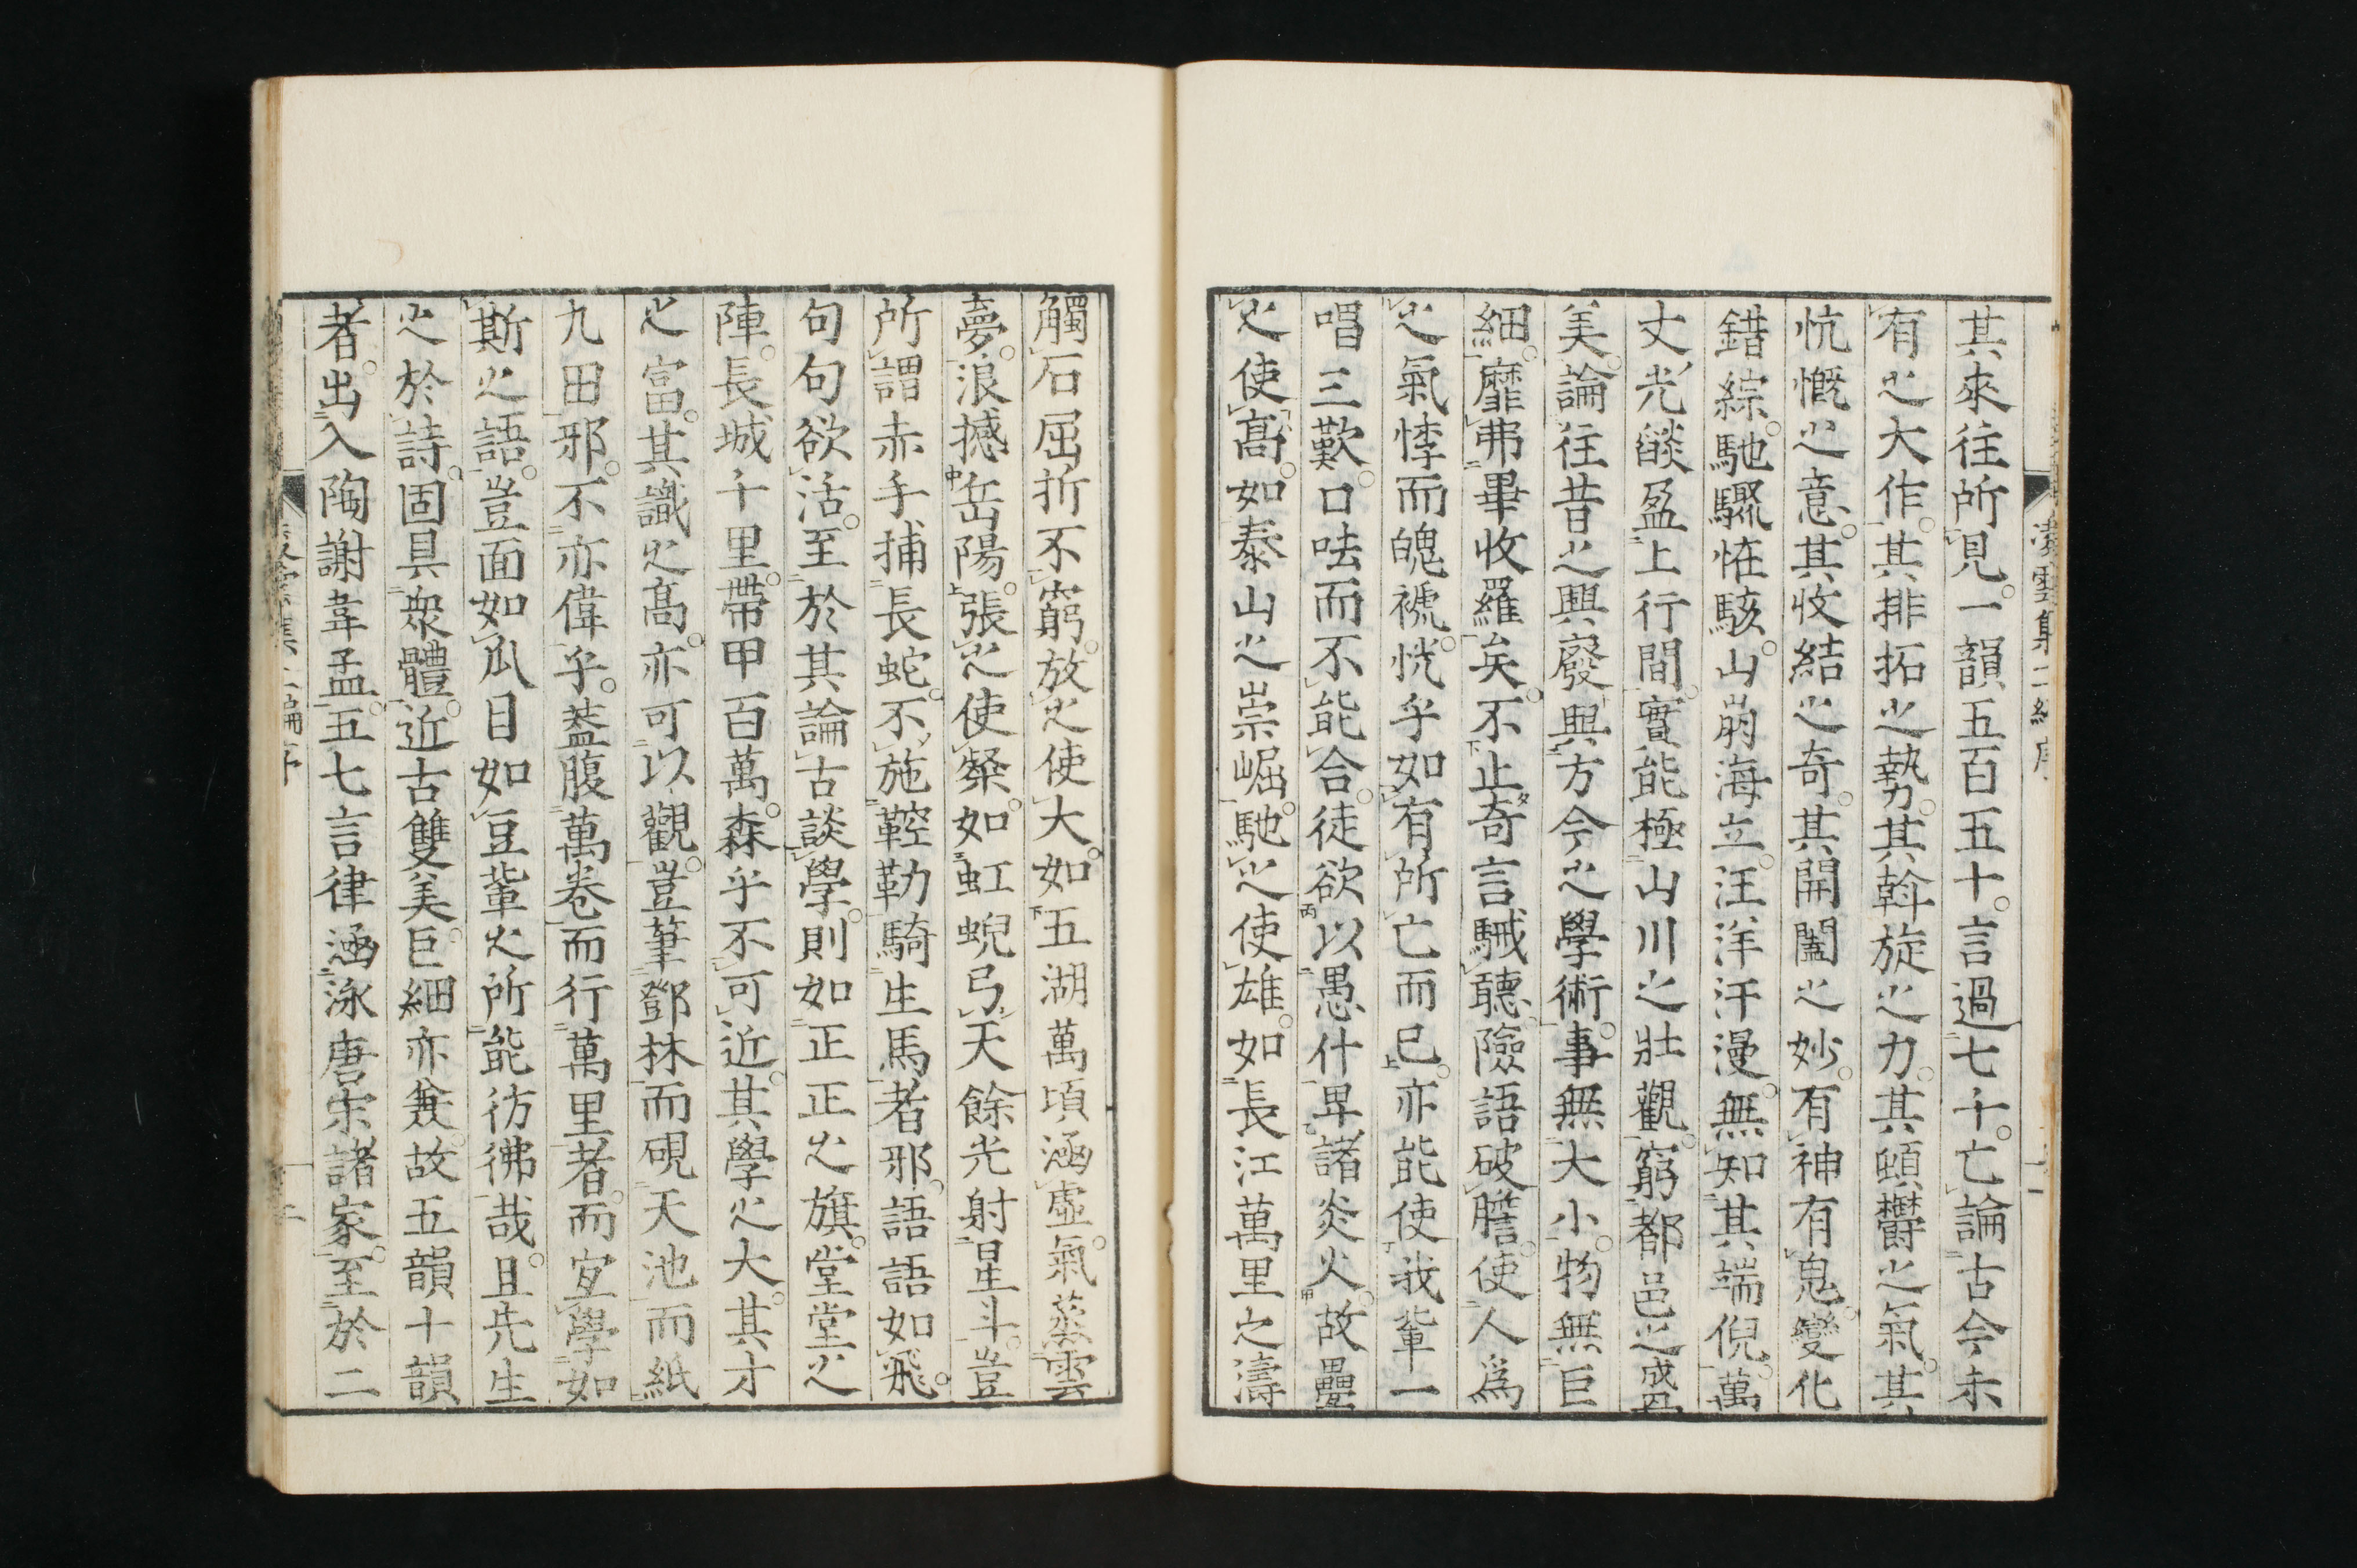 其來往所見。一韻五百五十。言過七千。亡論古今未
有之大作。其排拓之勢。其斡旋之力。其頤鬱之氣。其
忼慨之意。其收結之奇。其開闔之妙。有神有鬼。變化
錯綜。馳驟怪駭。山崩海立。汪洋汗漫。無知其端倪。萬
丈光燄盈上行間。實能極山川之壯觀。窮都邑之盛
美。論往昔之興廢。與方今之學術。事無大小。物無巨
細。靡弗畢收羅矣。不止奇言駴聽、險語破膽。使人爲
之氣悸而魄褫。恍乎如有所亡而已。亦能使我輩一
唱三歎。口呿而不能合。徒欲以愚什畀諸炎火。故疊
之使高。如泰山之崇崛。馳之使雄。如長江萬里之濤
觸石屈折不窮。放之使大。如五湖萬頃涵虛。氣蒸雲
夢。浪撼岳陽。張之使粲。如虹蜺弓天餘光射星斗。豈
所謂赤手捕長蛇。不施鞚勒騎生馬者邪。語語如飛。
句句欲活。至於其論古談學。則如正正之旗。堂堂之
陣。長城千里。帶甲百萬。森乎不可近。其學之大。其才
之富。其識之高。亦可以觀。豈筆鄧林而硯天池而紙
九田邪。不亦偉乎。葢腹萬卷而行萬里者。而宐學如
斯之語。豈面如瓜目如豆輩之所能彷彿哉。且先生
之於詩。固具衆體。近古雙美。巨細亦兼。故五韻十韻
者。出入陶謝韋孟。五七言律涵泳唐宋諸家。至於二
凌雲集二編序